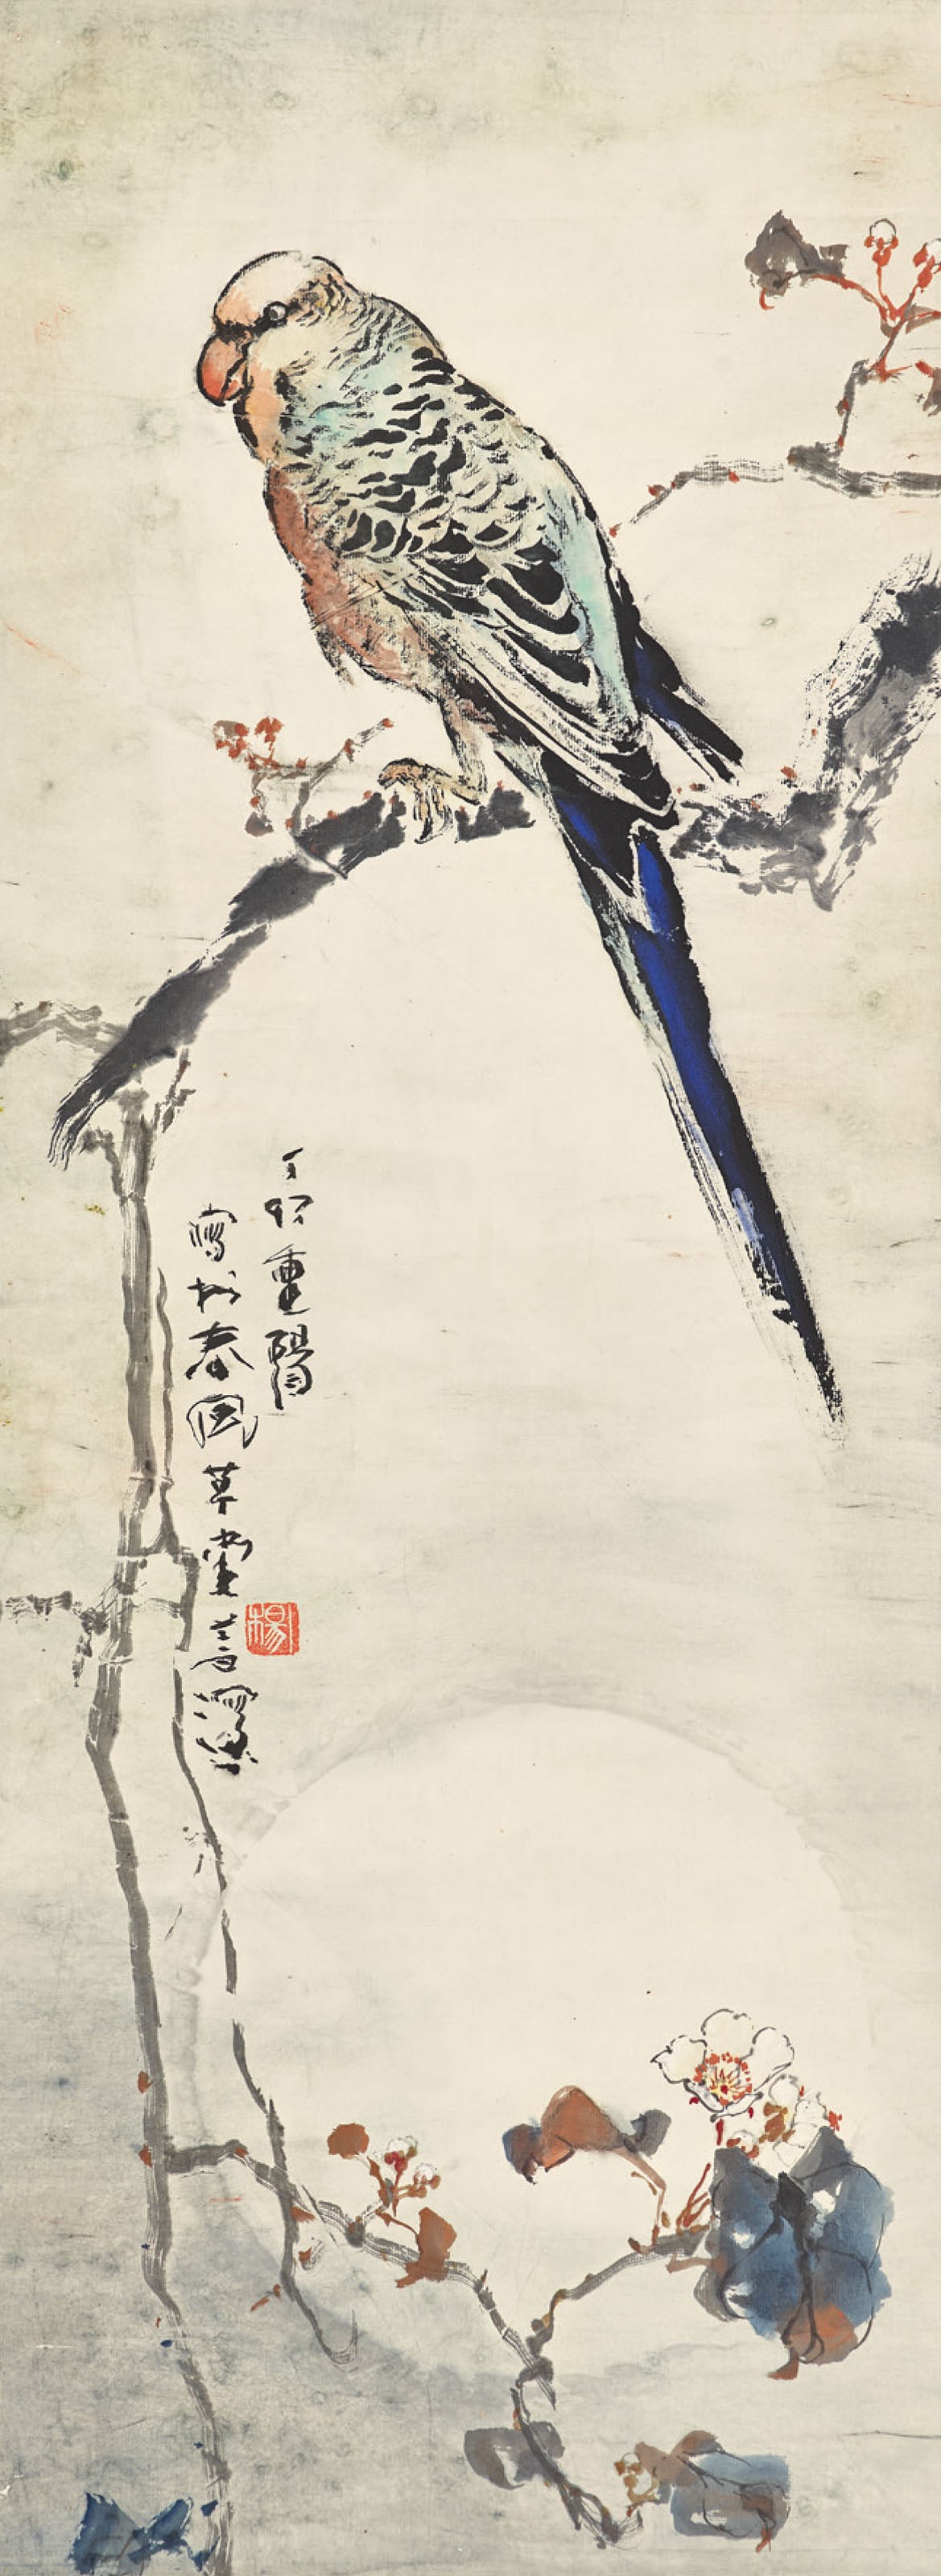 丁卯重陽
寫於春風草堂善深
楊